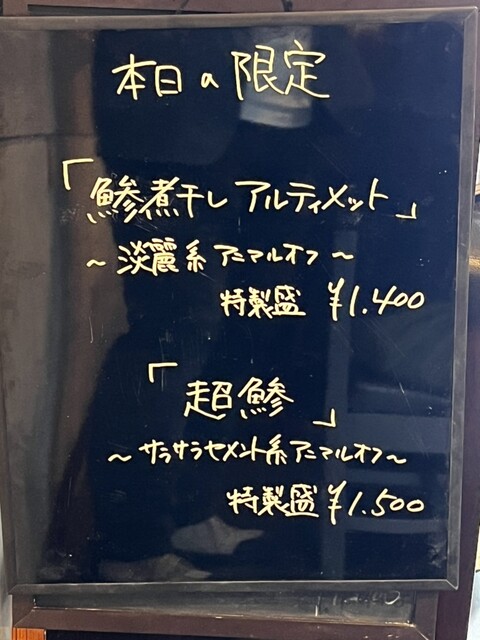 本日の限定
「鯵煮干しアルティメット」
～淡麗系アニマルオフ～
特製盛 ¥1.400
「超鯵」
～サラサラセメント系アニマルオフ～
特製盛 ¥1.500